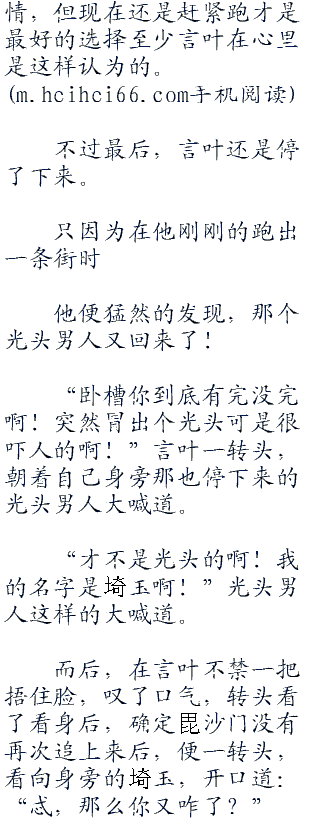 情，但现在还是赶紧跑才是
最好的选择至少言叶在心里
是这样认为的。
(m.hcihci66.com手机阅读)
不过最后，言叶还是停
了下来。
只因为在他刚刚的跑出
一条街时
他便猛然的发现，那个
光头男人又回来了！
“卧槽你到底有完没完
啊！突然冒出个光头可是很
吓人的啊！”言叶一转头，
朝着自己身旁那也停下来的
光头男人大喊道。
“才不是光头的啊！我
的名字是埼玉啊！”光头男
人这样的大喊道。
而后，在言叶不禁一把
捂住脸，叹了口气，转头看
了看身后，确定毘沙门没有
再次追上来后，便一转头，
看向身旁的埼玉，开口道：
“忒，那么你又咋了？”